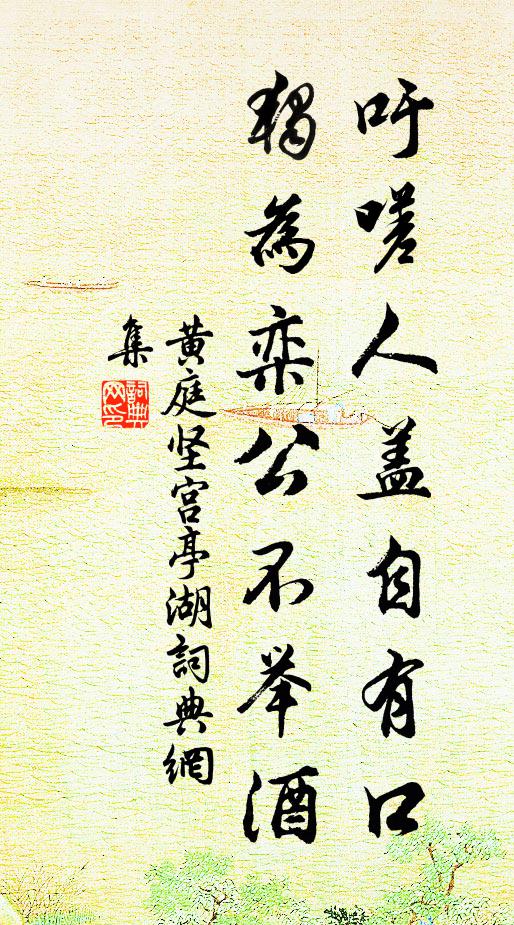 吁嗟人盖自有口
独为栾公不举酒
黄庭坚宫亭湖詞典網
集
詞典
网印